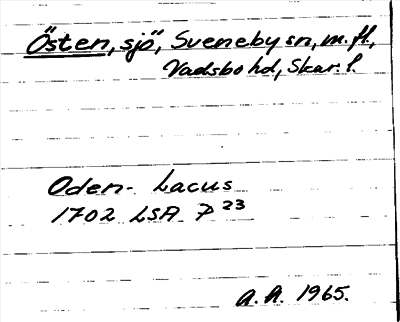 Östen, sjö, Sveneby sn, m. fl.,
Vadsbo hd, Skar. l.
Oden- Lacus
1702 LSA P 23
A. A. 1965.